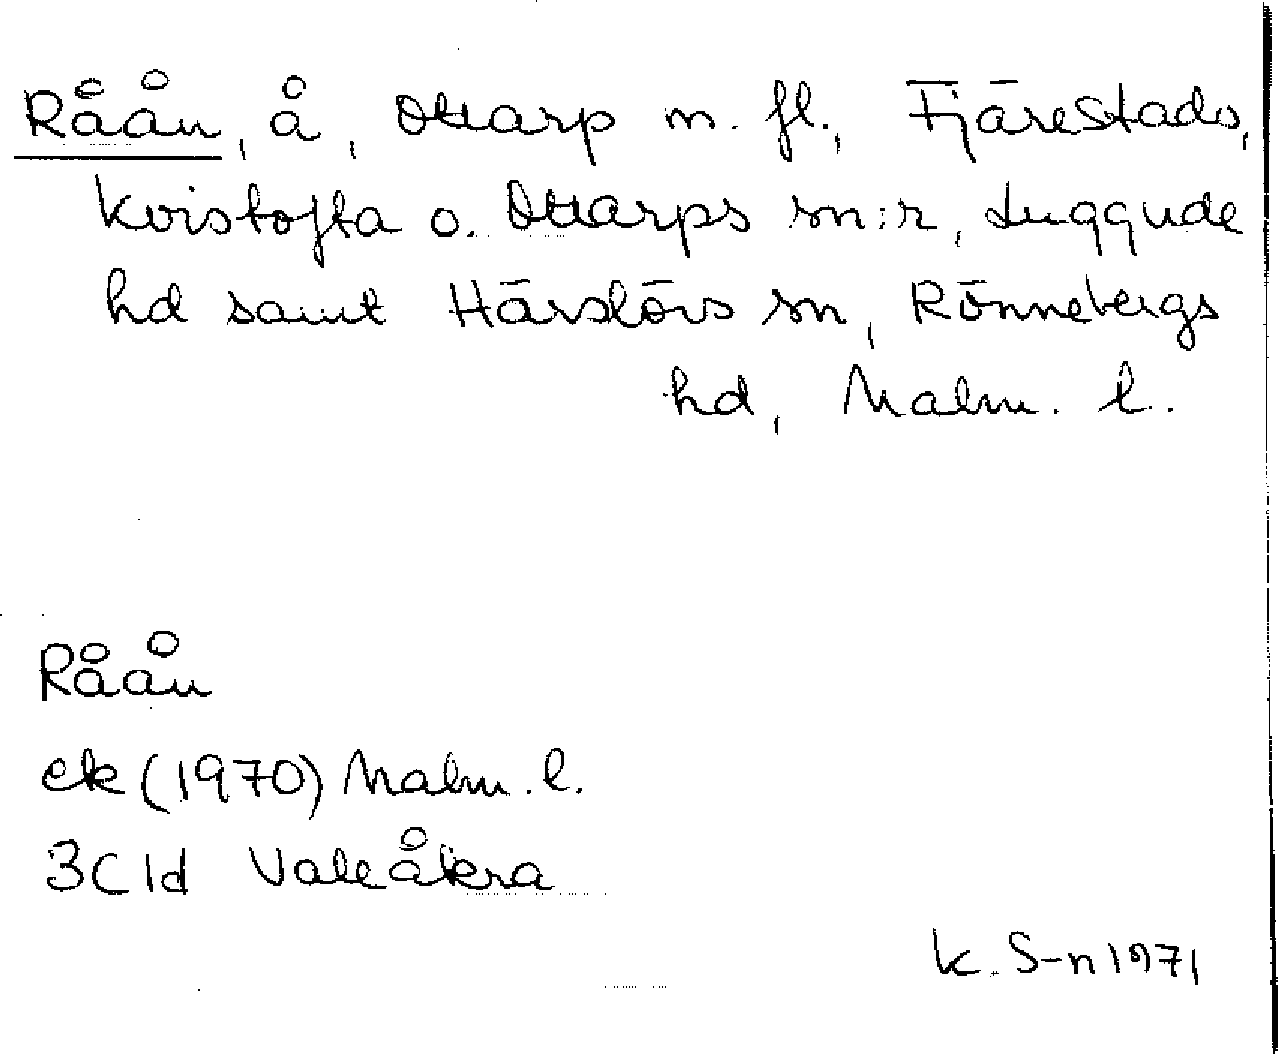 Råån, å, Ottarp m. fl., Fjärestads,
Kvistofta o. Ottarps sn:r, Luggude
hd samt Härslövs sn, Rönnebergs
hd, Malm. l.
Råån
ek (1970) Malm. l.
3C 1d Vallåkra
K. S-n 1971